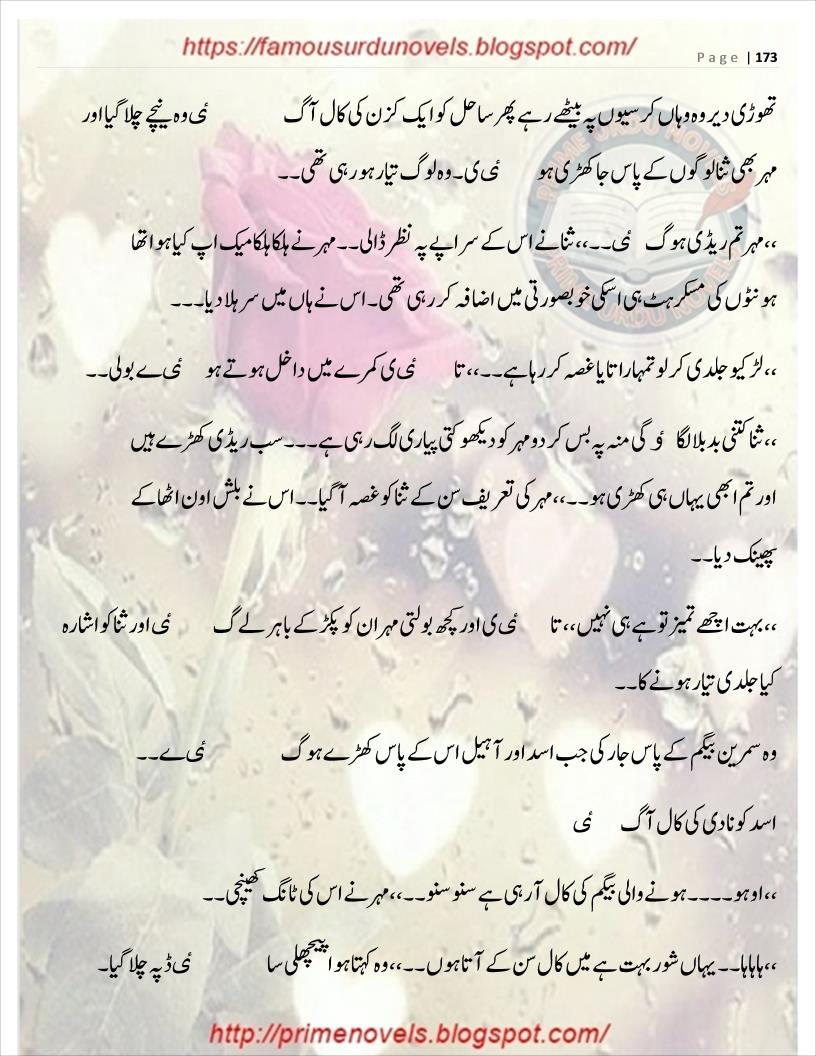 https://famousurdunovels.blogspot.com/
Page | 173
تھوڑی دیر وہ وہاں کرسیوں پہ بیٹھے رہے پھر ساحل کو ایک کزن کی کال آگ ئ وہ نیچے چلا گیا اور
مہر بھی ثنا لوگوں کے پاس جا کھڑی ہو ئ ی۔ وہ لوگ تیار ہو رہی تھی۔۔
،،مہر تم ریڈی ہوگ ئ ۔۔،، ثنا نے اس کے سراپے پہ نظر ڈالی۔۔ مہر نے ہلکا ہلکا میک اپ کیا ہوا تھا
ہونٹوں کی مسکرہٹ ہی اسکی خوبصورتی میں اضافہ کر رہی تھی۔ اس نے ہاں میں سر ہلا دیا۔۔۔
،،لڑکیو جلدی کرلو تمہارا تایا غصہ کر رہا ہے۔۔،، تا ئ ی کمرے میں داخل ہوتے ہو ئ ے بولی۔۔
،،ثنا کتنی بد بلا لگا ؤ گی منہ پہ بس کر دو مہر کو دیکھو کتی پیاری لگ رہی ہے۔۔۔ سب ریڈی کھڑے ہیں
اور تم ابھی یہاں ہی کھڑی ہو۔۔،، مہر کی تعریف سن کے ثنا کو غصہ آگیا۔۔ اس نے بلش اون اٹھا کے
پھینک دیا۔۔
،،بہت اچھے تمیز تو ہے ہی نہیں،، تا ئ ی اور کچھ بولتی مہر ان کو پکڑ کے باہر لے گ ئ اور ثنا کو اشارہ
کیا جلدی تیار ہونے کا۔۔
وہ سمرین بیگم کے پاس جا رکی جب اسد اور آہیل اس کے پاس کھڑے ہوگ ئ ے۔۔
اسد کو نادی کی کال آگ ئ
،،اوہو۔۔۔۔ ہونے والی بیگم کی کال آرہی ہے سنو سنو۔۔،، مہر نے اس کی ٹانگ کھینچی۔۔
،،ہاہاہا۔۔ یہاں شور بہت ہے میں کال سن کے آتا ہوں۔۔،، وہ کہتا ہوا پیچھلی سا ئ ڈ پہ چلا گیا۔
http://primenovels.blogspot.com/